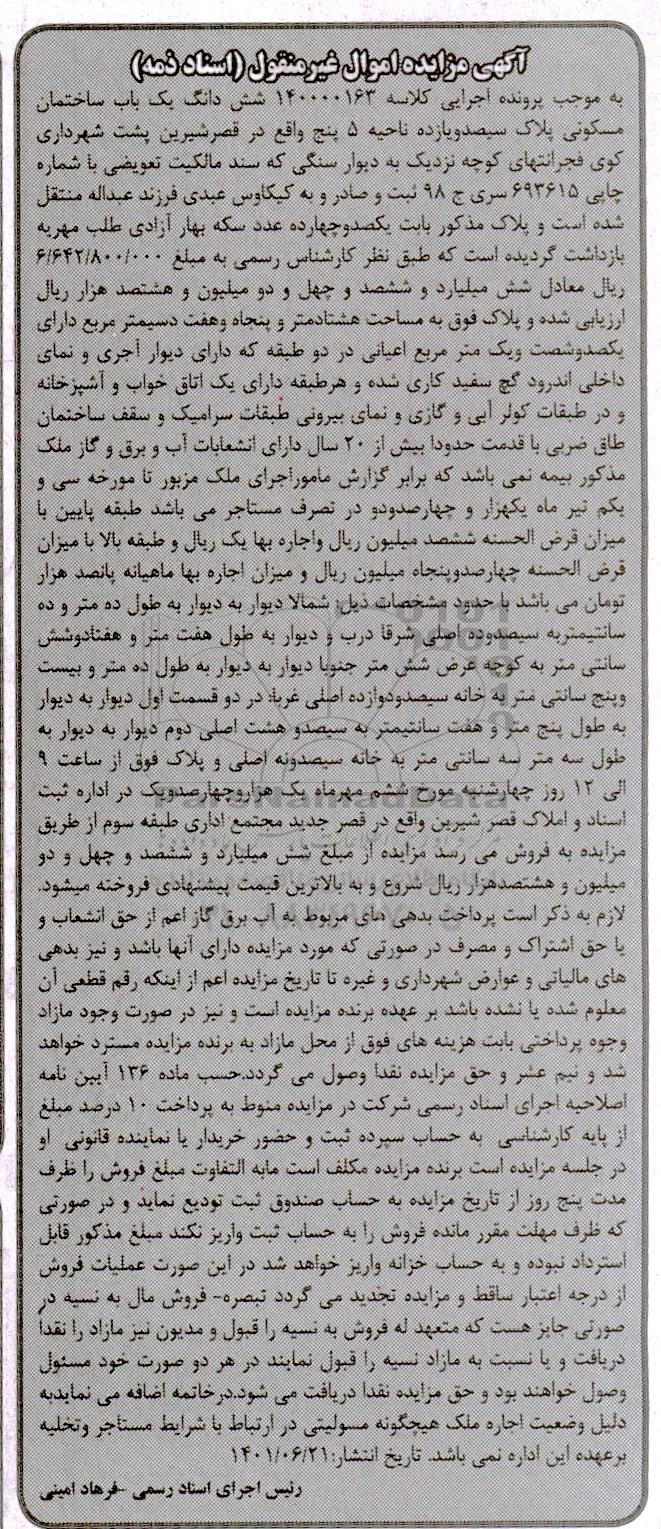 آگهی مزایده اموال غیرمنقول (اسناد ذمه)
به موجب پرونده اجرایی کلاسه ۱۴۰۰۰۰۱۶۳ شش دانگ یک باب ساختمان
مسکونی پلاک سیصدویازده ناحیه ۵ پنج واقع در قصرشیرین پشت شهرداری
کوی فجرانتهای کوچه نزدیک به دیوار سنگی که سند مالکیت تعویضی با شماره
چاپی ۶۹۳۶۱۵ سری ج ۹۸ ثبت و صادر و به کیکاوس عبدی فرزند عبداله منتقل
شده است و پلاک مذکور بابت یکصدوچهارده عدد سکه بهار آزادی طلب مهریه
بازداشت گردیده است که طبق نظر کارشناس رسمی به مبلغ ۶/۶۴۲/۸۰۰/۰۰۰
ریال معادل شش میلیارد و ششصد و چهل و دو میلیون و هشتصد هزار ریال
ارزیابی شده و پلاک فوق به مساحت هشتادمتر و پنجاه وهفت دسیمتر مربع دارای
یکصدوشصت ویک متر مربع اعیانی در دو طبقه که دارای دیوار آجری و نمای
داخلی اندرود گچ سفید کاری شده و هرطبقه دارای یک اتاق خواب و آشپزخانه
و در طبقات کولر آبی و گازی و نمای بیرونی طبقات سرامیک و سقف ساختمان
طاق ضربی با قدمت حدودا بیش از ۲۰ سال دارای انشعابات آب و برق و گاز ملک
مذکور بیمه نمی باشد که برابر گزارش ماموراجرای ملک مزبور تا مورخه سی و
یکم تیر ماه یکهزار و چهارصدودو در تصرف مستاجر می باشد طبقه پایین با
میزان قرض الحسنه ششصد میلیون ریال واجاره بها یک ریال و طبقه بالا با میزان
قرض الحسنه چهارصدوپنجاه میلیون ریال و میزان اجاره بها ماهیانه پانصد هزار
تومان می باشد با حدود مشخصات ذیل: شمالا دیوار به دیوار به طول ده متر و ده
سانتیمتربه سیصدوده اصلی شرقا درب و دیوار به طول هفت متر و هفتادوشش
سانتی متر به کوچه عرض شش متر جنوبا دیوار به دیوار به طول ده متر و بیست
وپنج سانتی متر به خانه سیصدودوازده اصلی غربا: در دو قسمت اول دیوار به دیوار
به طول پنج متر و هفت سانتیمتر به سیصدو هشت اصلی دوم دیوار به دیوار به
طول سه متر سه سانتی متر به خانه سیصدونه اصلی و پلاک فوق از ساعت ۹
الی ۱۲ روز چهارشنبه مورخ ششم مهرماه یک هزاروچهارصدویک در اداره ثبت
اسناد و املاک قصر شیرین واقع در قصر جدید مجتمع اداری طبقه سوم از طریق
مزایده به فروش می رسد مزایده از مبلغ شش میلیارد و ششصد و چهل و دو
میلیون و هشتصدهزار ریال شروع و به بالاترین قیمت پیشنهادی فروخته میشود.
لازم به ذکر است پرداخت بدهی های مربوط به آب برق گاز اعم از حق انشعاب و
یا حق اشتراک و مصرف در صورتی که مورد مزایده دارای آنها باشد و نیز بدهی
های مالیاتی و عوارض شهرداری و غیره تا تاریخ مزایده اعم از اینکه رقم قطعی آن
معلوم شده یا نشده باشد بر عهده برنده مزایده است و نیز در صورت وجود مازاد
وجوه پرداختی بابت هزینه های فوق از محل مازاد به برنده مزایده مسترد خواهد
شد و نیم عشر و حق مزایده نقدا وصول می گردد.حسب ماده ۱۳۶ آیین نامه
اصلاحیه اجرای اسناد رسمی شرکت در مزایده منوط به پرداخت ۱۰ درصد مبلغ
از پایه کارشناسی به حساب سپرده ثبت و حضور خریدار یا نماینده قانونی او
در جلسه مزایده است برنده مزایده مکلف است مابه التفاوت مبلغ فروش را ظرف
مدت پنج روز از تاریخ مزایده به حساب صندوق ثبت تودیع نماید و در صورتی
که ظرف مهلت مقرر مانده فروش را به حساب ثبت واریز نکند مبلغ مذکور قابل
استرداد نبوده و به حساب خزانه واریز خواهد شد در این صورت عملیات فروش
از درجه اعتبار ساقط و مزایده تجدید می گردد تبصره- فروش مال به نسیه در
صورتی جایز هست که متعهد له فروش به نسیه را قبول و مدیون نیز مازاد را نقدا
دریافت و یا نسبت به مازاد نسیه را قبول نمایند در هر دو صورت خود مسئول
وصول خواهند بود و حق مزایده نقدا دریافت می شود.درخاتمه اضافه می نمایدبه
دلیل وضعیت اجاره ملک هیچگونه مسولیتی در ارتباط با شرایط مستاجر وتخلیه
برعهده این اداره نمی باشد. تاریخ انتشار:۱۴۰۱/۰۶/۲۱
رئیس اجرای اسناد رسمی -فرهاد امینی